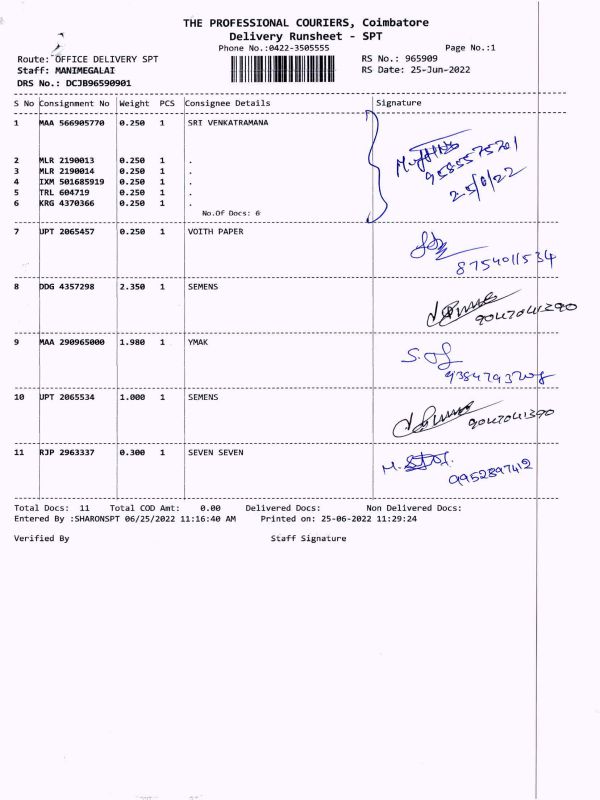 THE PROFESSIONAL COURIERS, Coimbatore
Delivery Runsheet - SPT
Phone No.:0422-3505555
Page No.:1
Route: OFFICE DELIVERY SPT
RS No.: 965909
Staff: MANIMEGALAI
RS Date: 25-Jun-2022
DRS No.: DCJB96590901
S No Consignment No Weight PCS Consignee Details Signature
1 MAA 566905770 0.250 1 SRI VENKATRAMANA
2 MLR 2190013 0.250 1 .
3 MLR 2190014 0.250 1 .
4 IXM 501685919 0.250 1 .
5 TRL 604719 0.250 1 .
6 KRG 4370366 0.250 1 .
No.Of Docs: 6
9585575701
25/6/22
7 UPT 2065457 0.250 1 VOITH PAPER
8754011534
8 DDG 4357298 2.350 1 SEMENS
9 MAA 290965000 1.980 1 YMAK
10 UPT 2065534 1.000 1 SEMENS
9047041390
11 RJP 2963337 0.300 1 SEVEN SEVEN
9952897412
Total Docs: 11 Total COD Amt: 0.00 Delivered Docs: Non Delivered Docs:
Entered By :SHARONSPT 06/25/2022 11:16:40 AM Printed on: 25-06-2022 11:29:24
Verified By Staff Signature